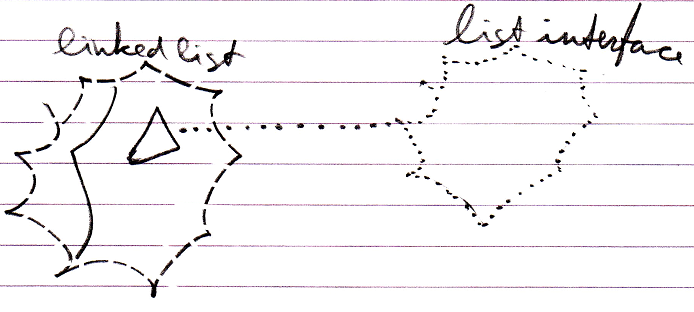 linked list
list interface